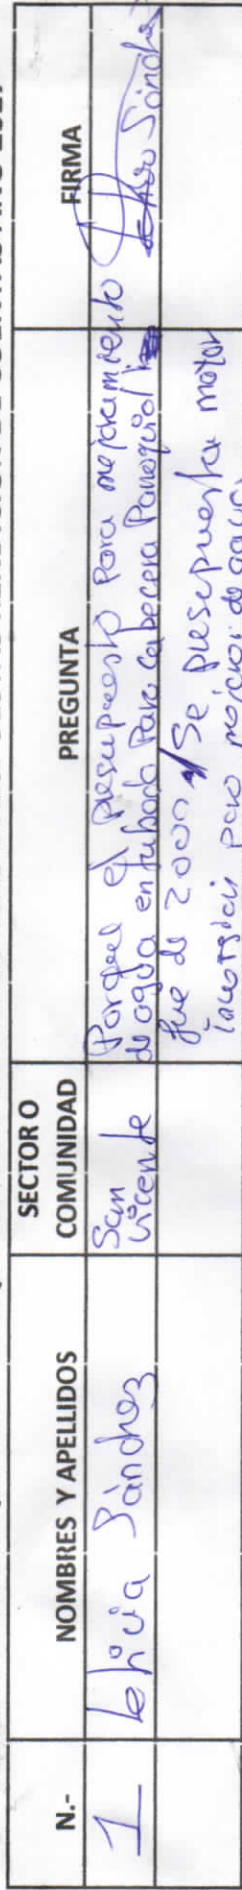 N.-
NOMBRES Y APELLIDOS
SECTOR O
COMUNIDAD
PREGUNTA
FIRMA
1
Leticia Sánchez
San
Vicente
Porque el presupuesto para mejoramiento
de agua entubada para cabecera Parroquial
fue de 2000 Se presupuesta mayor
para mejoras de agua
Sánchez